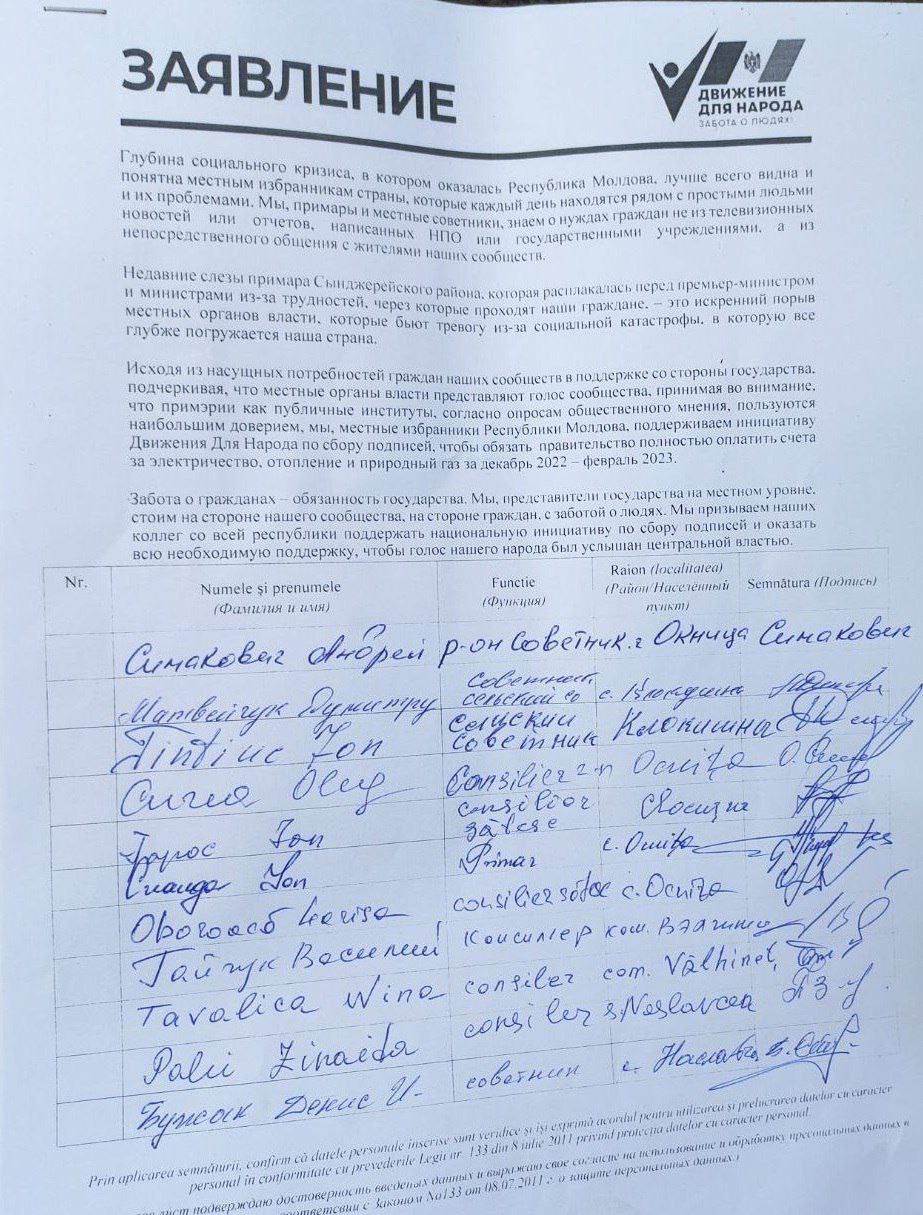 ЗАЯВЛЕНИЕ
ДВИЖЕНИЕ
ДЛЯ НАРОДА
ЗАБОТА О ЛЮДЯХ!
Глубина социального кризиса, в котором оказалась Республика Молдова, лучше всего видна и
понятна местным избранникам страны, которые каждый день находятся рядом с простыми людьми
и их проблемами. Мы, примары и местные советники, знаем о нуждах граждан не из телевизионных
новостей или отчетов, написанных НПО или государственными учреждениями, а из
непосредственного общения с жителями наших сообществ.
Недавние слезы примара Сынджерейского района, которая расплакалась перед премьер-министром
и министрами из-за трудностей, через которые проходят наши граждане, – это искренний порыв
местных органов власти, которые бьют тревогу из-за социальной катастрофы, в которую все
глубже погружается наша страна.
Исходя из насущных потребностей граждан наших сообществ в поддержке со стороны государства,
подчеркивая, что местные органы власти представляют голос сообщества, принимая во внимание,
что примэрии как публичные институты, согласно опросам общественного мнения, пользуются
наибольшим доверием, мы, местные избранники Республики Молдова, поддерживаем инициативу
Движения Для Народа по сбору подписей, чтобы обязать правительство полностью оплатить счета
за электричество, отопление и природный газ за декабрь 2022 – февраль 2023.
Забота о гражданах – обязанность государства. Мы, представители государства на местном уровне,
стоим на стороне нашего сообщества, на стороне граждан, с заботой о людях. Мы призываем наших
коллег со всей республики поддержать национальную инициативу по сбору подписей и оказать
всю необходимую поддержку, чтобы голос нашего народа был услышан центральной властью.
Nr. Numele şi prenumele (Фамилия и имя) Functie (Функция) Raion (localitatea) (Район/Населённый пункт) Semnătura (Подпись)
Симакович Андрей р-он Советник. г Окница Симакович
Матвейчук Думитру советник сельский с.
Ion сельский советник
Oleg Consilier r-n Ocnița
Ion consilier sătesc
Ion Primar s. Ocnița
consilier s. Ocnița
Гайчук Василий Консилиер ком.
Tavalica Nina consilier com. Vălcineț
Palii Zinaida consilier s. Naslavcea
Денис И. советник с.
Prin aplicarea semnăturii, confirm că datele personale înscrise sunt veridice şi îşi exprimă acordul pentru utilizarea şi prelucrarea datelor cu caracter
personal în conformitate cu prevederile Legii nr. 133 din 8 iulie 2011 privind protecţia datelor cu caracter personal.
лист подтверждаю достоверность введеных данных и выражаю свое согласие на использование и обработку персональных данных в
соответсвии с Законом No133 от 08.07.2011 г. о защите персональных данных.)